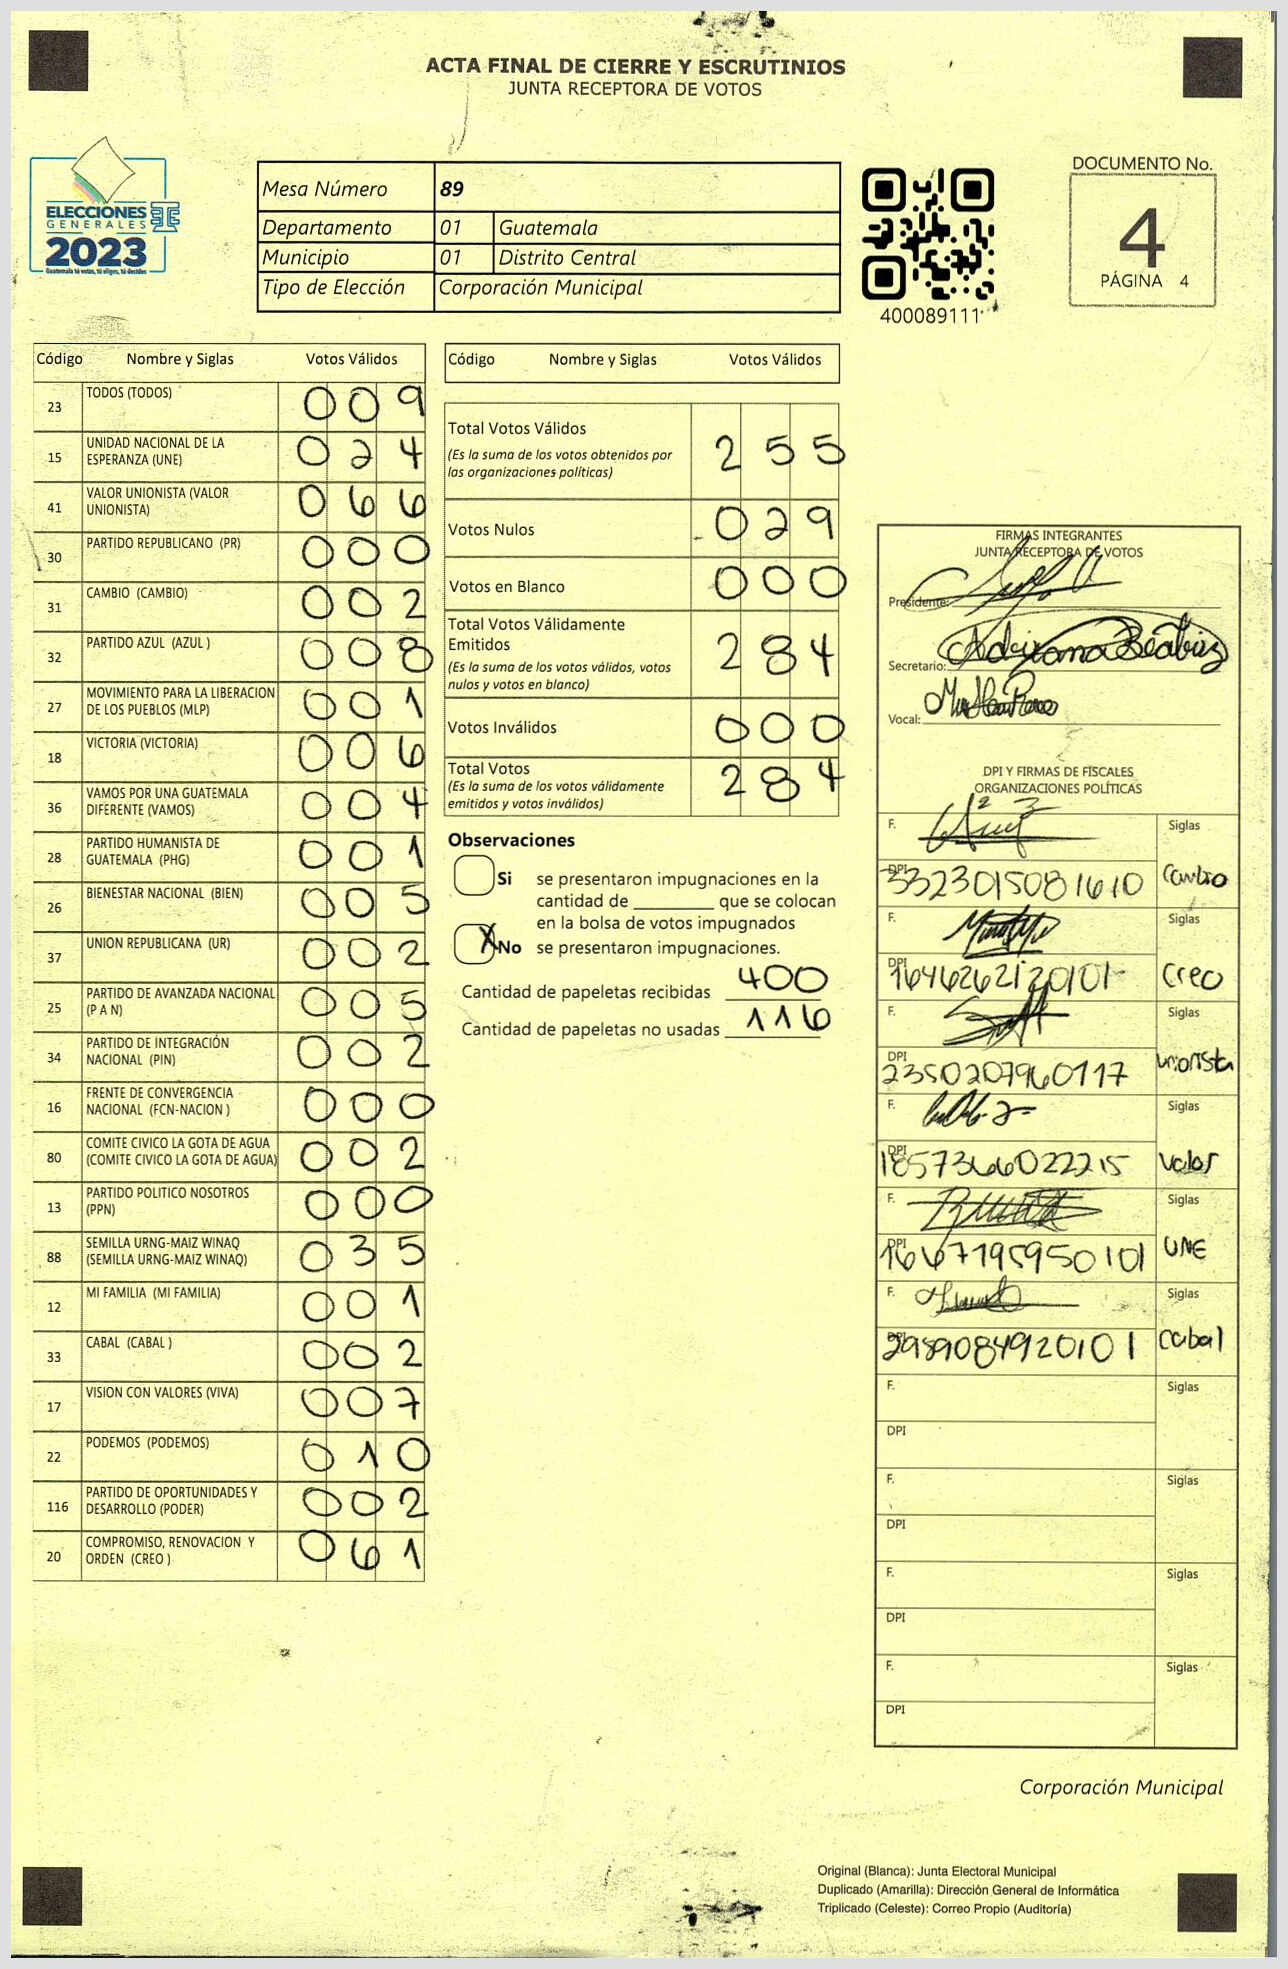 ACTA FINAL DE CIERRE Y ESCRUTINIOS
JUNTA RECEPTORA DE VOTOS
ELECCIONES
GENERALES
2023
Guatemala tú votas, tú eliges, tú decides
Mesa Número 89
Departamento 01 Guatemala
Municipio 01 Distrito Central
Tipo de Elección Corporación Municipal
400089111
DOCUMENTO No.
4
PÁGINA 4
Código Nombre y Siglas Votos Válidos
23 TODOS (TODOS) 009
15 UNIDAD NACIONAL DE LA ESPERANZA (UNE) 024
41 VALOR UNIONISTA (VALOR UNIONISTA) 066
30 PARTIDO REPUBLICANO (PR) 000
31 CAMBIO (CAMBIO) 002
32 PARTIDO AZUL (AZUL ) 008
27 MOVIMIENTO PARA LA LIBERACION DE LOS PUEBLOS (MLP) 001
18 VICTORIA (VICTORIA) 006
36 VAMOS POR UNA GUATEMALA DIFERENTE (VAMOS) 004
28 PARTIDO HUMANISTA DE GUATEMALA (PHG) 001
26 BIENESTAR NACIONAL (BIEN) 005
37 UNION REPUBLICANA (UR) 002
25 PARTIDO DE AVANZADA NACIONAL (P A N) 005
34 PARTIDO DE INTEGRACIÓN NACIONAL (PIN) 002
16 FRENTE DE CONVERGENCIA NACIONAL (FCN-NACION ) 000
80 COMITE CIVICO LA GOTA DE AGUA (COMITE CIVICO LA GOTA DE AGUA) 002
13 PARTIDO POLITICO NOSOTROS (PPN) 000
88 SEMILLA URNG-MAIZ WINAQ (SEMILLA URNG-MAIZ WINAQ) 035
12 MI FAMILIA (MI FAMILIA) 001
33 CABAL (CABAL ) 002
17 VISION CON VALORES (VIVA) 007
22 PODEMOS (PODEMOS) 010
116 PARTIDO DE OPORTUNIDADES Y DESARROLLO (PODER) 002
20 COMPROMISO, RENOVACION Y ORDEN (CREO ) 061
Código Nombre y Siglas Votos Válidos
Total Votos Válidos 255
(Es la suma de los votos obtenidos por
las organizaciones políticas)
Votos Nulos 029
Votos en Blanco 000
Total Votos Válidamente
Emitidos 284
(Es la suma de los votos válidos, votos
nulos y votos en blanco)
Votos Inválidos 000
Total Votos 284
(Es la suma de los votos válidamente
emitidos y votos inválidos)
Observaciones
Si se presentaron impugnaciones en la
cantidad de ________ que se colocan
en la bolsa de votos impugnados
X No se presentaron impugnaciones.
Cantidad de papeletas recibidas 400
Cantidad de papeletas no usadas 116
FIRMAS INTEGRANTES
JUNTA RECEPTORA DE VOTOS
Presidente:
Secretario: Adriana Beatriz
Vocal:
DPI Y FIRMAS DE FISCALES
ORGANIZACIONES POLÍTICAS
F. Siglas
DPI 3323015081610 Cambio
F. Siglas
DPI 1646262120101 Creo
F. Siglas
DPI 2350207960117 unionista
F. Siglas
DPI 1857366022215 Valor
F. Siglas
DPI 1667195950101 UNE
F. Siglas
DPI 2989084920101 cabal
F. Siglas
DPI
F. Siglas
DPI
F. Siglas
DPI
F. Siglas
DPI
Corporación Municipal
Original (Blanca): Junta Electoral Municipal
Duplicado (Amarilla): Dirección General de Informática
Triplicado (Celeste): Correo Propio (Auditoría)